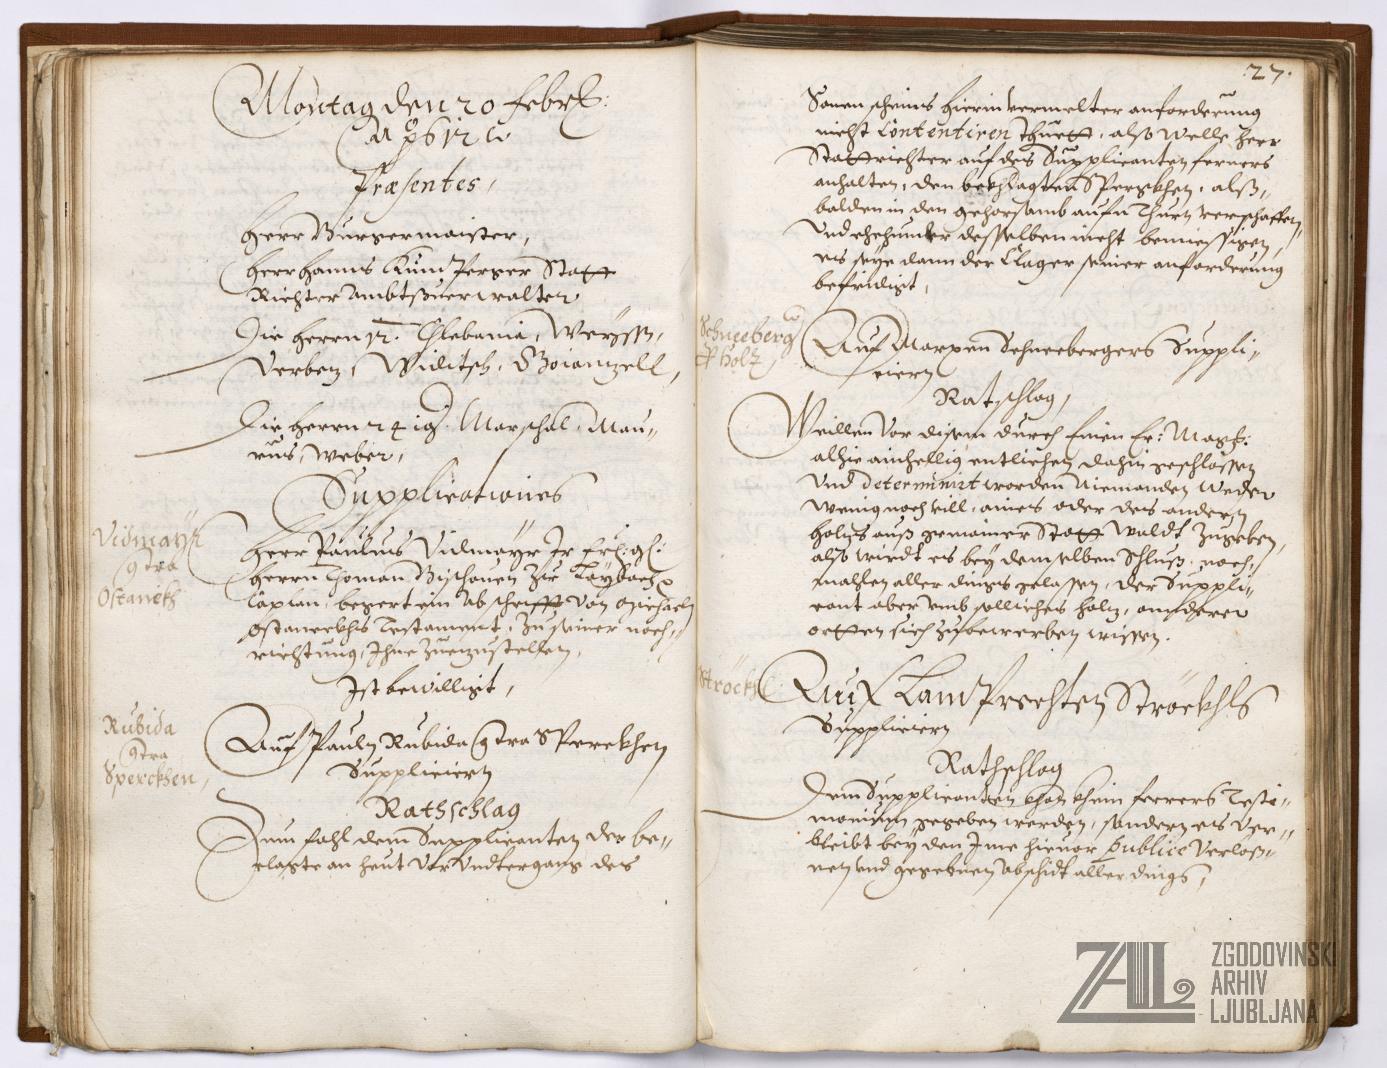 Montag den 20 Febr:
A° 1612
Præsentes,
Herr Burgermaister,
Herr Hanns Kumperger Statt
Richter Ambtsverwalter
Die Herrn 12. Chlebania, Weyss,
Verbez, Widitsh, Boiantzell,
Die Herrn 24 ig. Marschal, Mau=
rus, Weber,
Supplicationes
Vidmayr
Contra
Ostanekh
Herr Paulus Vidmayr Ir Frl: gl:
Herrn Thoman Bischouen Zu Laybach
Caplan, begert ein Abschrifft von Michaeln
Ostaneckhs Testament, Zu seiner nach=
richtung, Ihne Zuezustellen,
Ist bewilligt,
Rubida
Contra
Sperckhen,
Auf Pauln Rubida Contra Sperekhen
Supplieiern
Rathschlag
Zum fahl dem Supplicanten der be=
clagte an heut Vor Undtergang des
27.
Sonenscheins hierin vermelter anforderung
nicht Contentiren thuett, alß welle Herr
Stattrichter auf des Supplicanten ferners
anhalten, den bekhlagten Sperekhen, alß=
balden in den gehorsamb aufn Thurn verschaffen,
Und ehehunder desselben nicht bemiessigen,
es seye dann der Clager seiner anforderung
befridigt,
Schneeberger
Holz
Auf Marxen Schneebergers Suppli=
ciern
Ratschlag,
Weillen Vor disem durch Einen Er: Magt:
alhie ainhellig entlichen dahin geschlossen
Und determinirt worden Niemanden Weder
Wenig noch vill, aines oder des andern
holzes auß gemainer Statt Waldt Zugeben,
alß wirdt es bey demselben Schluß noch=
mahlen aller dings gelassen, der Suppli=
cant aber umb solliches holz, anderer
ortten sich Zubewerben wissen.
Ströckhl
Auf Lamprechten Ströekhls
Supplieiern
Rathschlag
Dem Supplicanten khan khein ferrers Testi=
monium gegeben werden, sondern es ver=
bleibt bey den Ime hievor publice Verlaß=
nen und gegebnen Abschidt aller dings,
ZAL
ZGODOVINSKI
ARHIV
LJUBLJANA